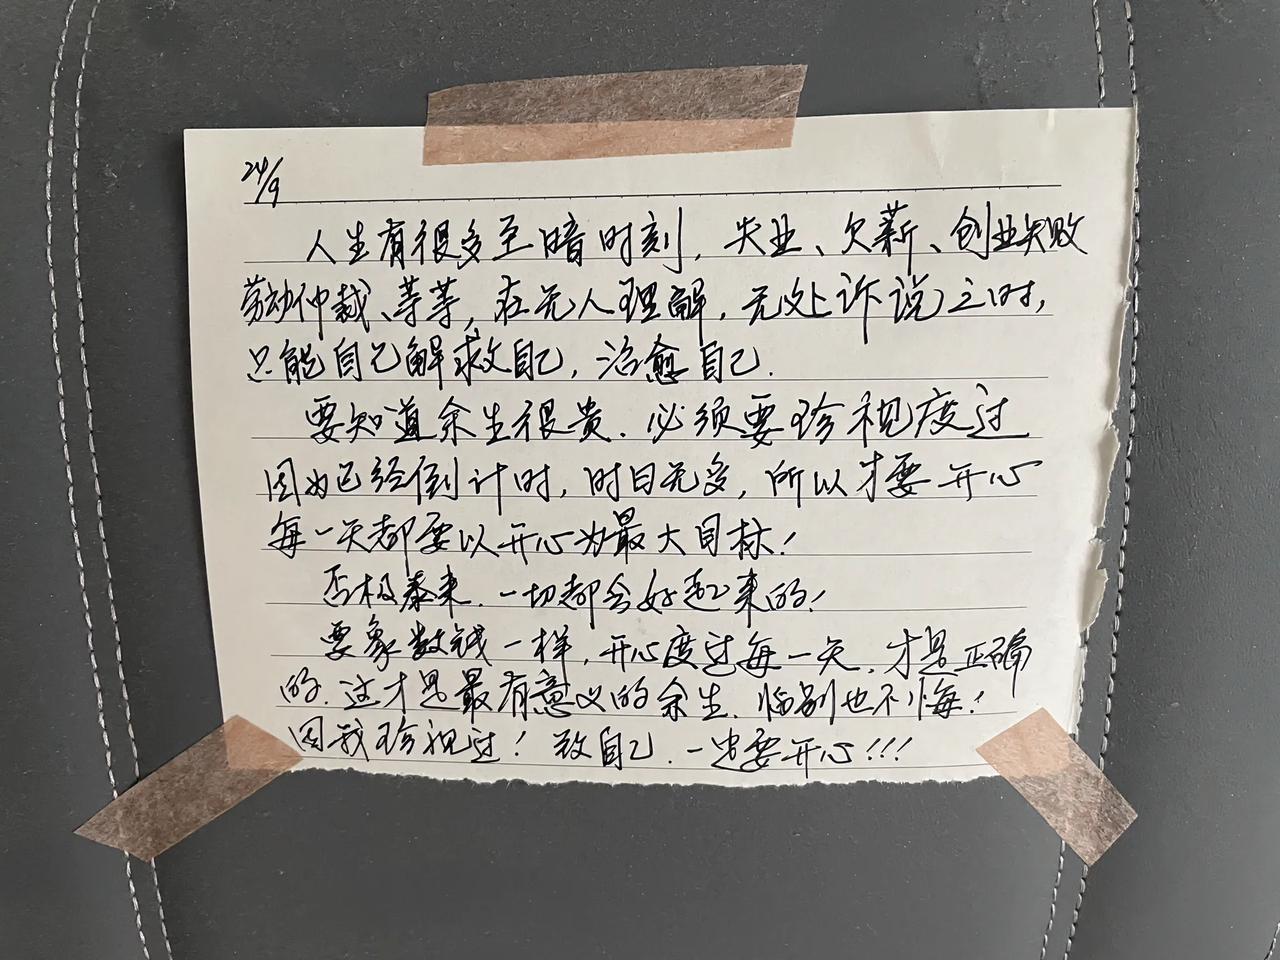 24/9
人生有很多至暗时刻，失业、欠薪、创业失败
劳动仲裁、等等，在无人理解，无处诉说之时，
只能自己解救自己，治愈自己.
要知道余生很贵.必须要珍视度过
因为已经倒计时，时日无多，所以才要开心
每一天都要以开心为最大目标！
否极泰来.一切都会好起来的！
要象数钱一样，开心度过每一天.才是正确
的.这才是最有意义的余生.临别也不悔！
因我珍视过！致自己.一定要开心！！！